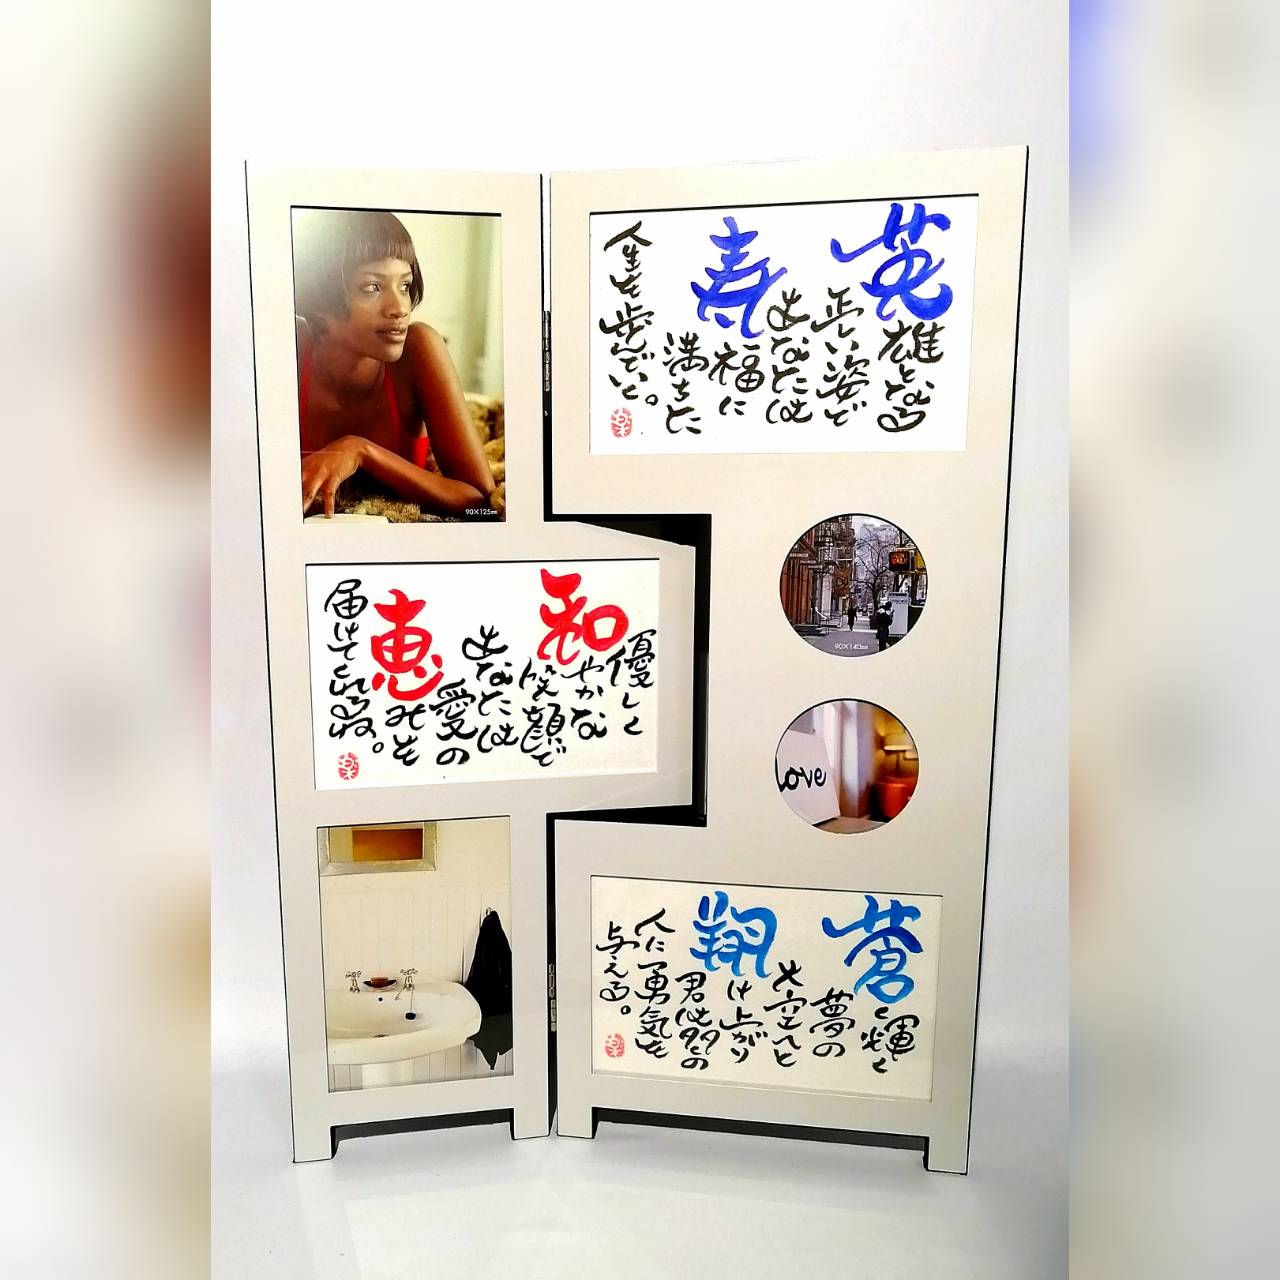 90×125㎜
英雄となる
正しい姿で
あなたは
寿福に
満ちた
人生を歩んでいく。
優しく
和やかな
笑顔で
あなたは
愛の
恵みを
届けてくれるね。
90×140㎜
love
蒼く輝く
夢の
大空へと
翔け上がり
君は多くの
人に勇気を
与える。